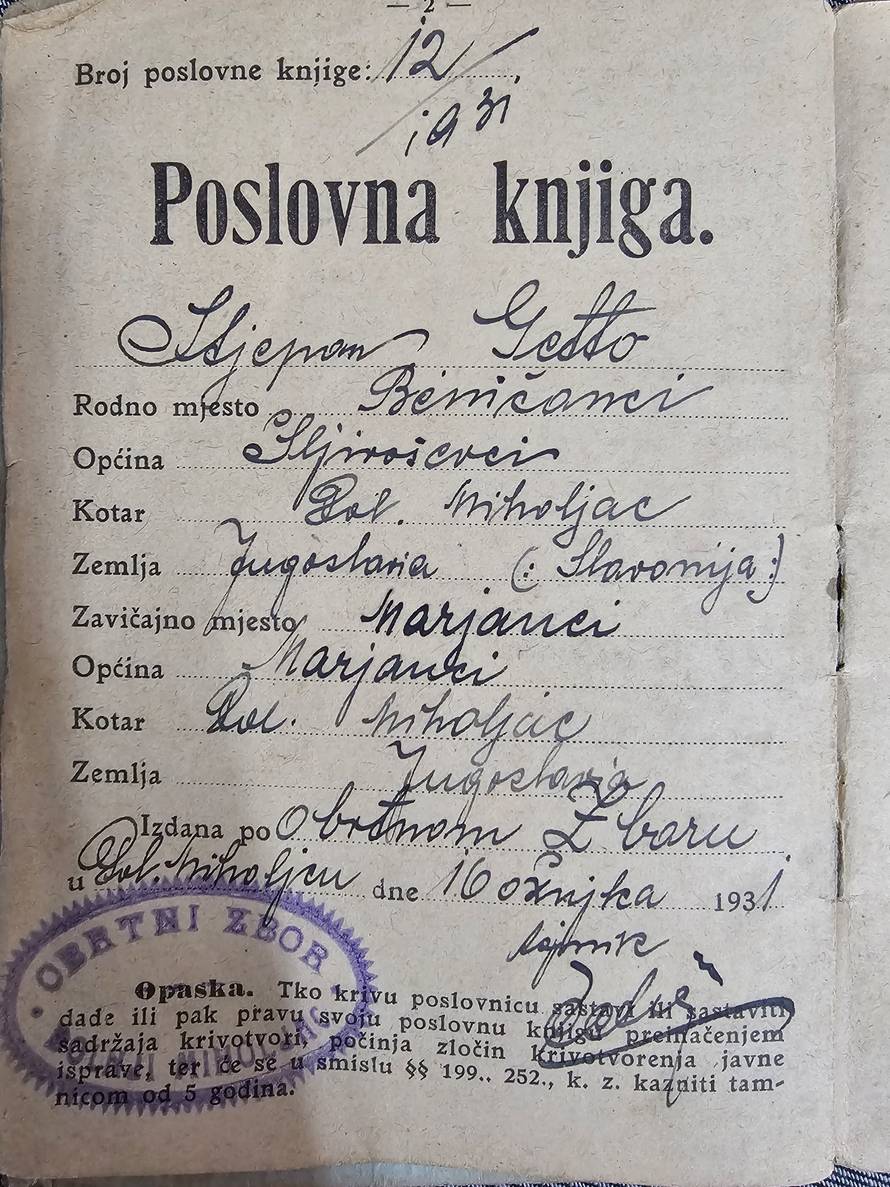 — 2 —
Broj poslovne knjige: 12/1931
Poslovna knjiga.
Stjepan Getto
Rodno mjesto Beničanci
Općina Šljivoševci
Kotar Dol. Miholjac
Zemlja Jugoslavia (: Slavonija :)
Zavičajno mjesto Marjanci
Općina Marjanci
Kotar Dol. Miholjac
Zemlja Jugoslavia
Izdana po Obrtnom Zboru
u Dol. Miholjcu dne 16 ožujka 1931
tajnik
OBRTNI ZBOR
MIHOLJAC
Opaska. Tko krivu poslovnicu sastavi ili sastaviti
dade ili pak pravu svoju poslovnu knjigu preinačenjem
sadržaja krivotvori, počinja zločin krivotvorenja javne
isprave, ter će se u smislu §§ 199.. 252., k. z. kazniti tam-
nicom od 5 godina.